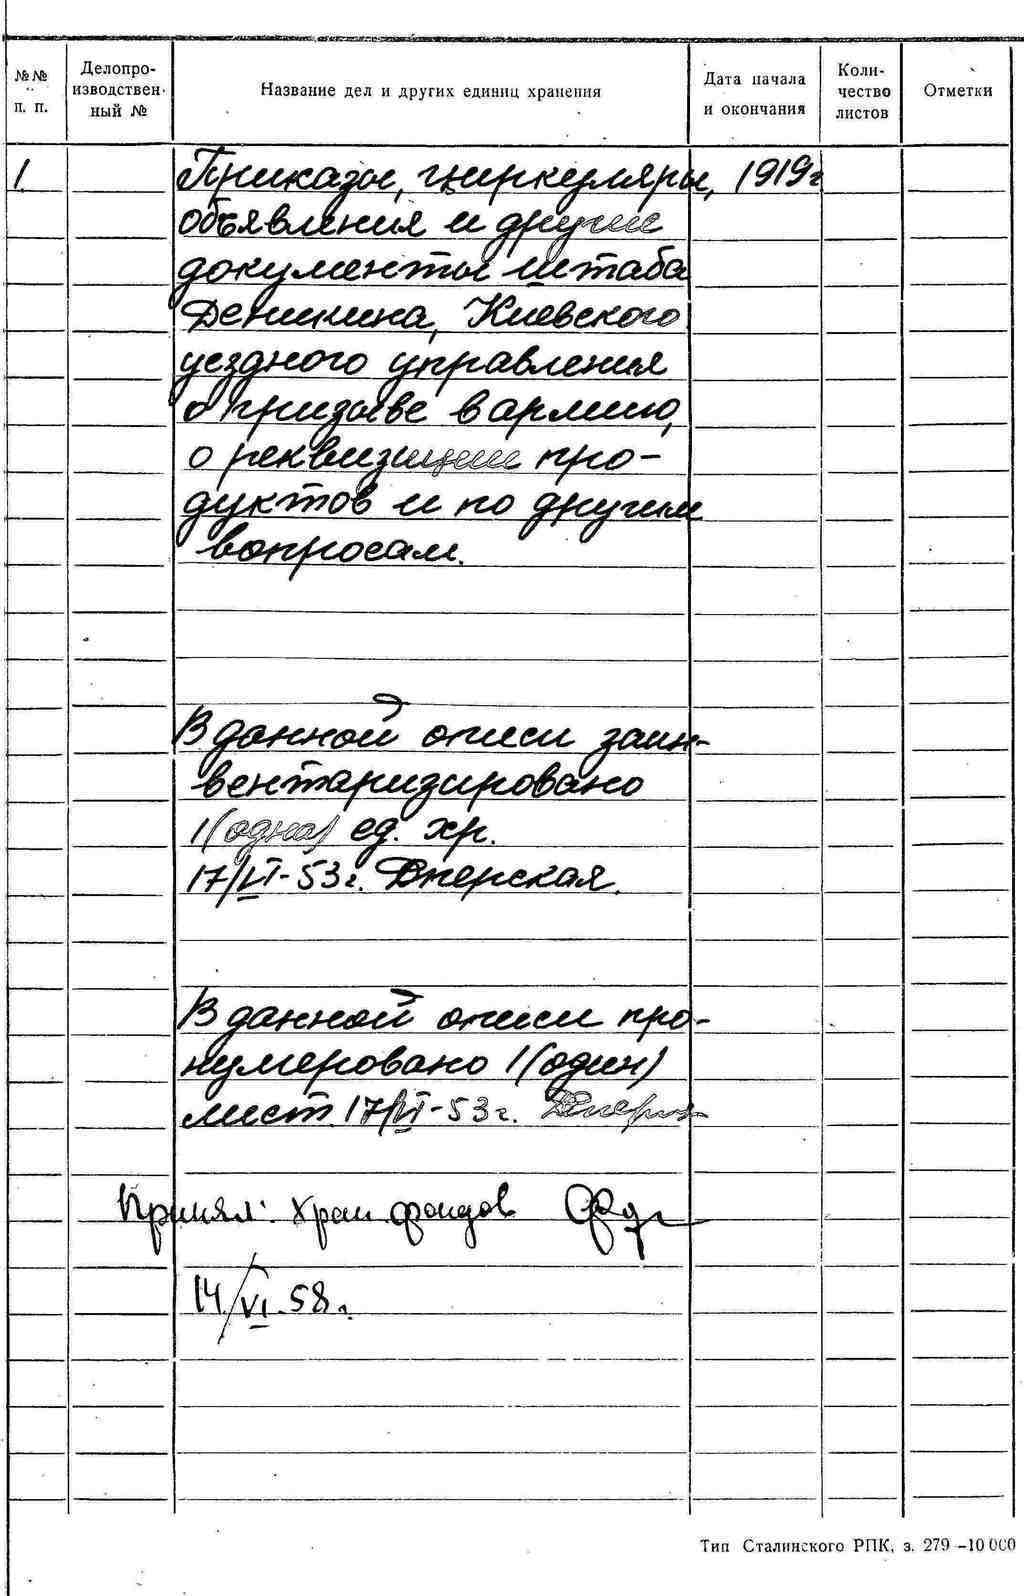 №№ п. п.
Делопро-изводствен-ный №
Название дел и других единиц хранения
Дата начала и окончания
Коли-чество листов
Отметки
1 Приказы, циркуляры, 1919г
объявления и другие
документы штаба
Деникина, Киевского
уездного управления
о призыве в армию,
о реквизиции про-
дуктов и по другим
вопросам.
В данной описи заин-
вентаризировано
1 (одна) ед. хр.
17/VI-53г.
В данной описи про-
нумеровано 1 (один)
лист. 17/VI-53г.
Принял: Хран. фондов
14/VI.58г.
Тип Сталинского РПК, з. 279-10 000